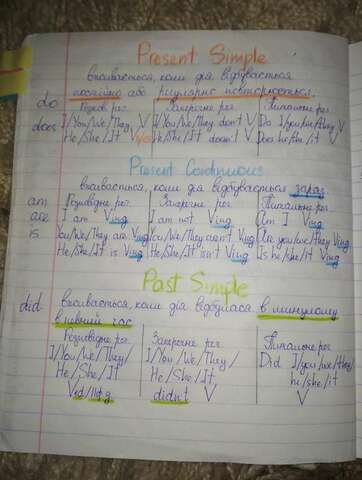 Present Simple
вживається, коли дія відбувається
постійно або регулярно повторюється.
do Розпов. реч. Заперечне реч. Питальне реч.
does I/You/We/They V I/You/We/They don't V Do I/you/we/they V
He/She/It V He/She/It doesn't V Does he/she/it V
Present Continuous
вживається, коли дія відбувається зараз
am Розповідне реч. Заперечне реч. Питальне реч.
are I am Ving I am not Ving Am I Ving
is You/We/They are Ving You/We/They aren't Ving Are you/we/they Ving
He/She/It is Ving He/She/It isn't Ving Is he/she/it Ving
Past Simple
did вживається, коли дія відбулася в минулому
в певний час
Розповідне реч. Заперечне реч. Питальне реч.
I/You/We/They/ I/You/We/They/ Did I/you/we/they/
He/She/It He/She/It he/she/it
Ved/ІІф. didn't V V